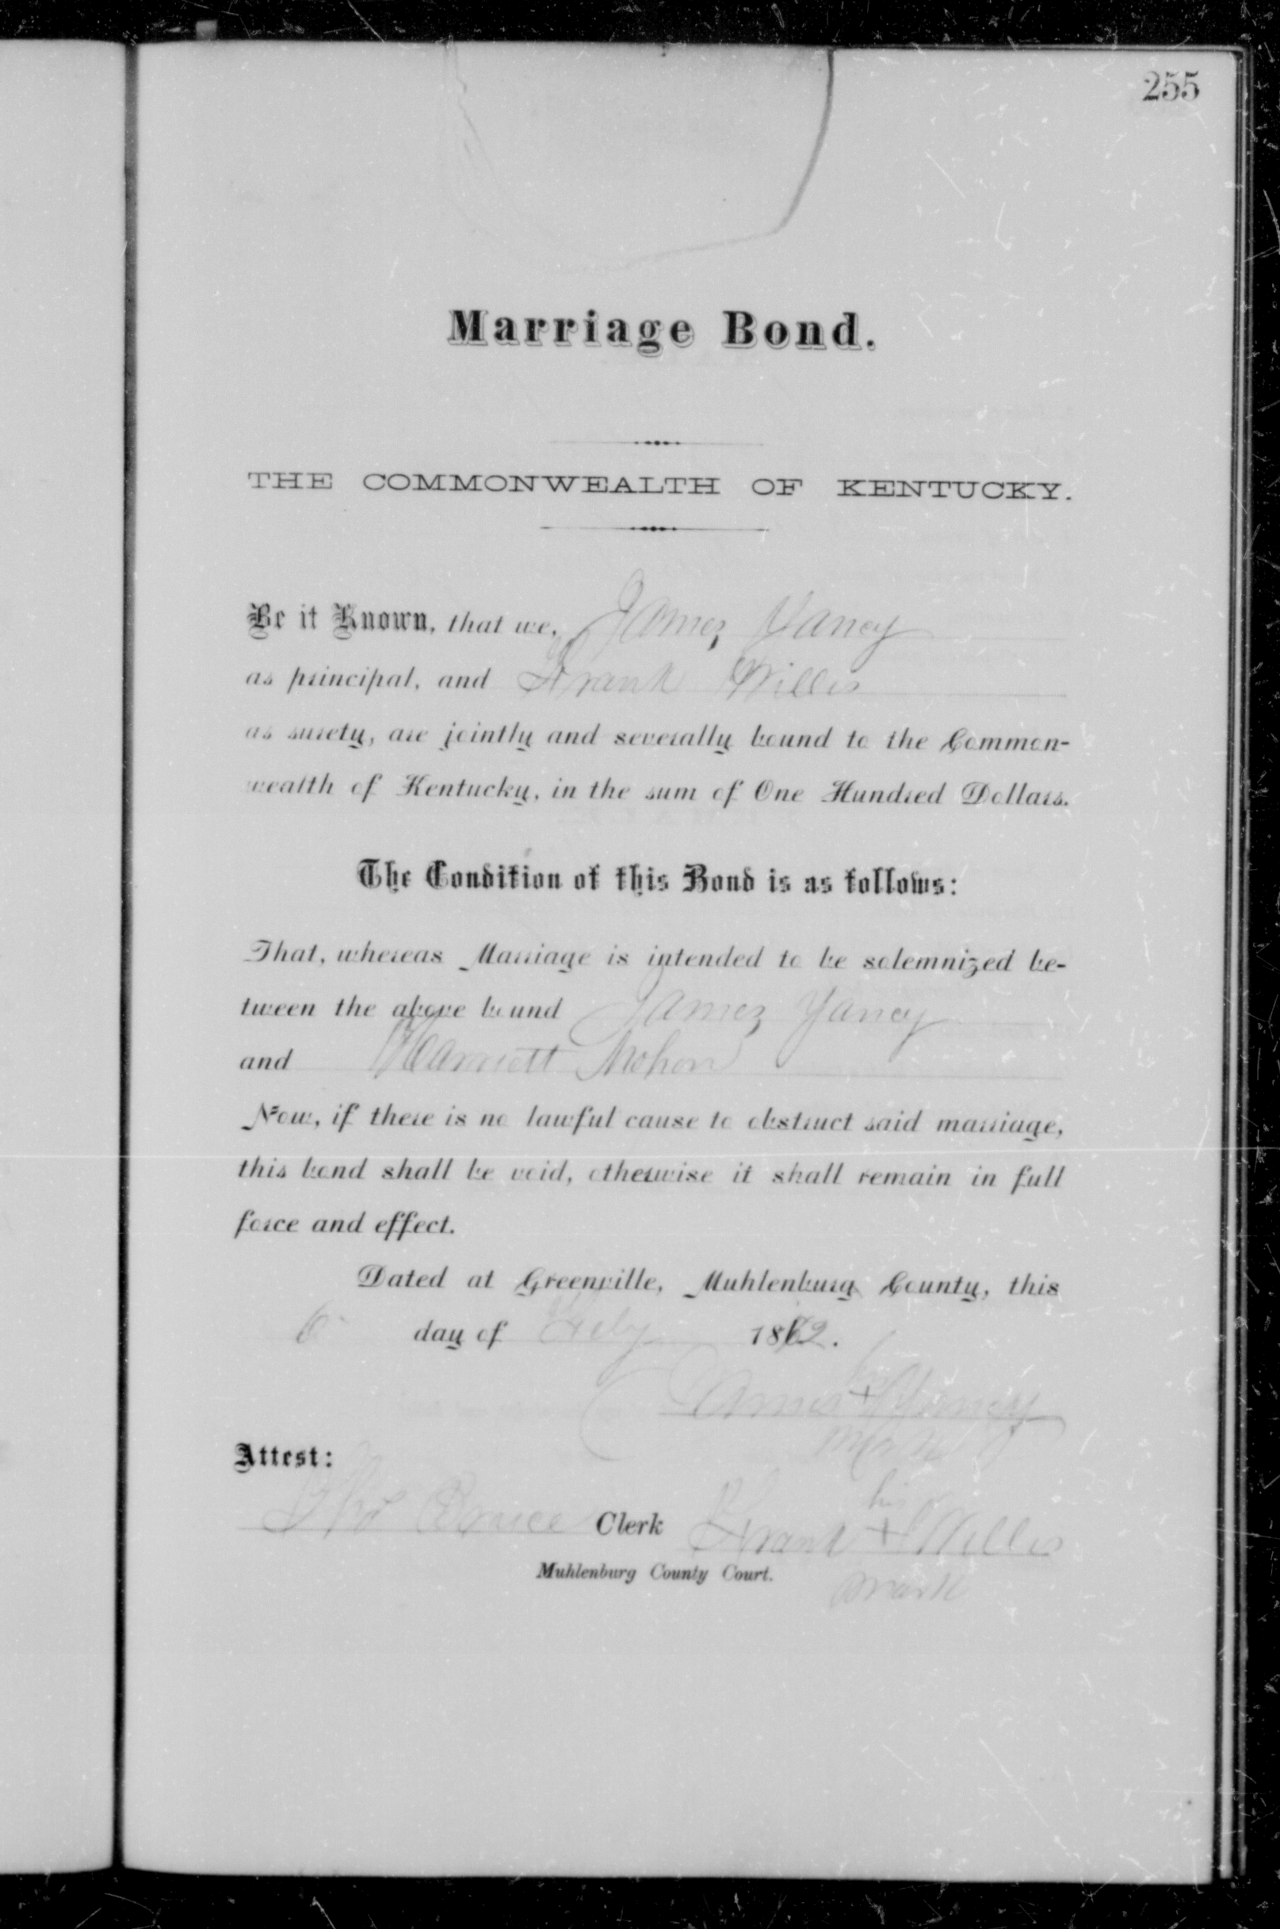 255
Marriage Bond.
THE COMMONWEALTH OF KENTUCKY.
Be it Known, that we, James Yancy
as principal, and Frank Willis
as surety, are jointly and severally bound to the Common-
wealth of Kentucky, in the sum of One Hundred Dollars.
The Condition of this Bond is as follows:
That, whereas Marriage is intended to be solemnized be-
tween the above bound James Yancy
and Harriett Mohon
Now, if there is no lawful cause to obstruct said marriage,
this bond shall be void, otherwise it shall remain in full
force and effect.
Dated at Greenville, Muhlenburg County, this
6 day of Feby 18 2.
James + Yancy
mark
Attest:
his
Tho Bruce Clerk Frank + Willis
Muhlenburg County Court. mark